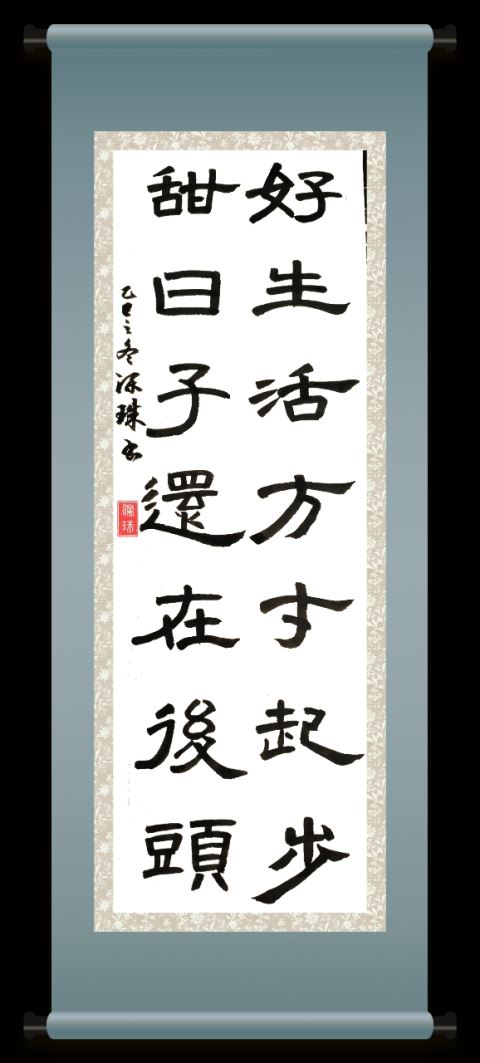 好生活方才起步
甜日子還在後頭
乙巳之冬深珠书